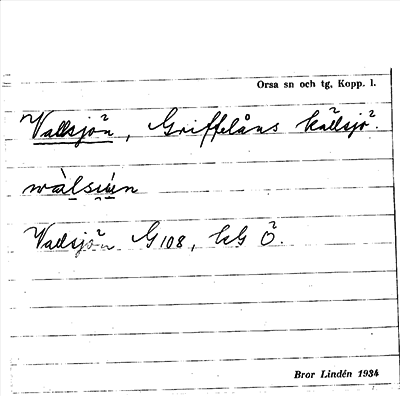 Orsa sn och tg, Kopp. l.
Vallsjön², Griffelåns källsjö².
wàlsiún
Vallsjön² G108, kG Ö².
Bror Lindén 1934